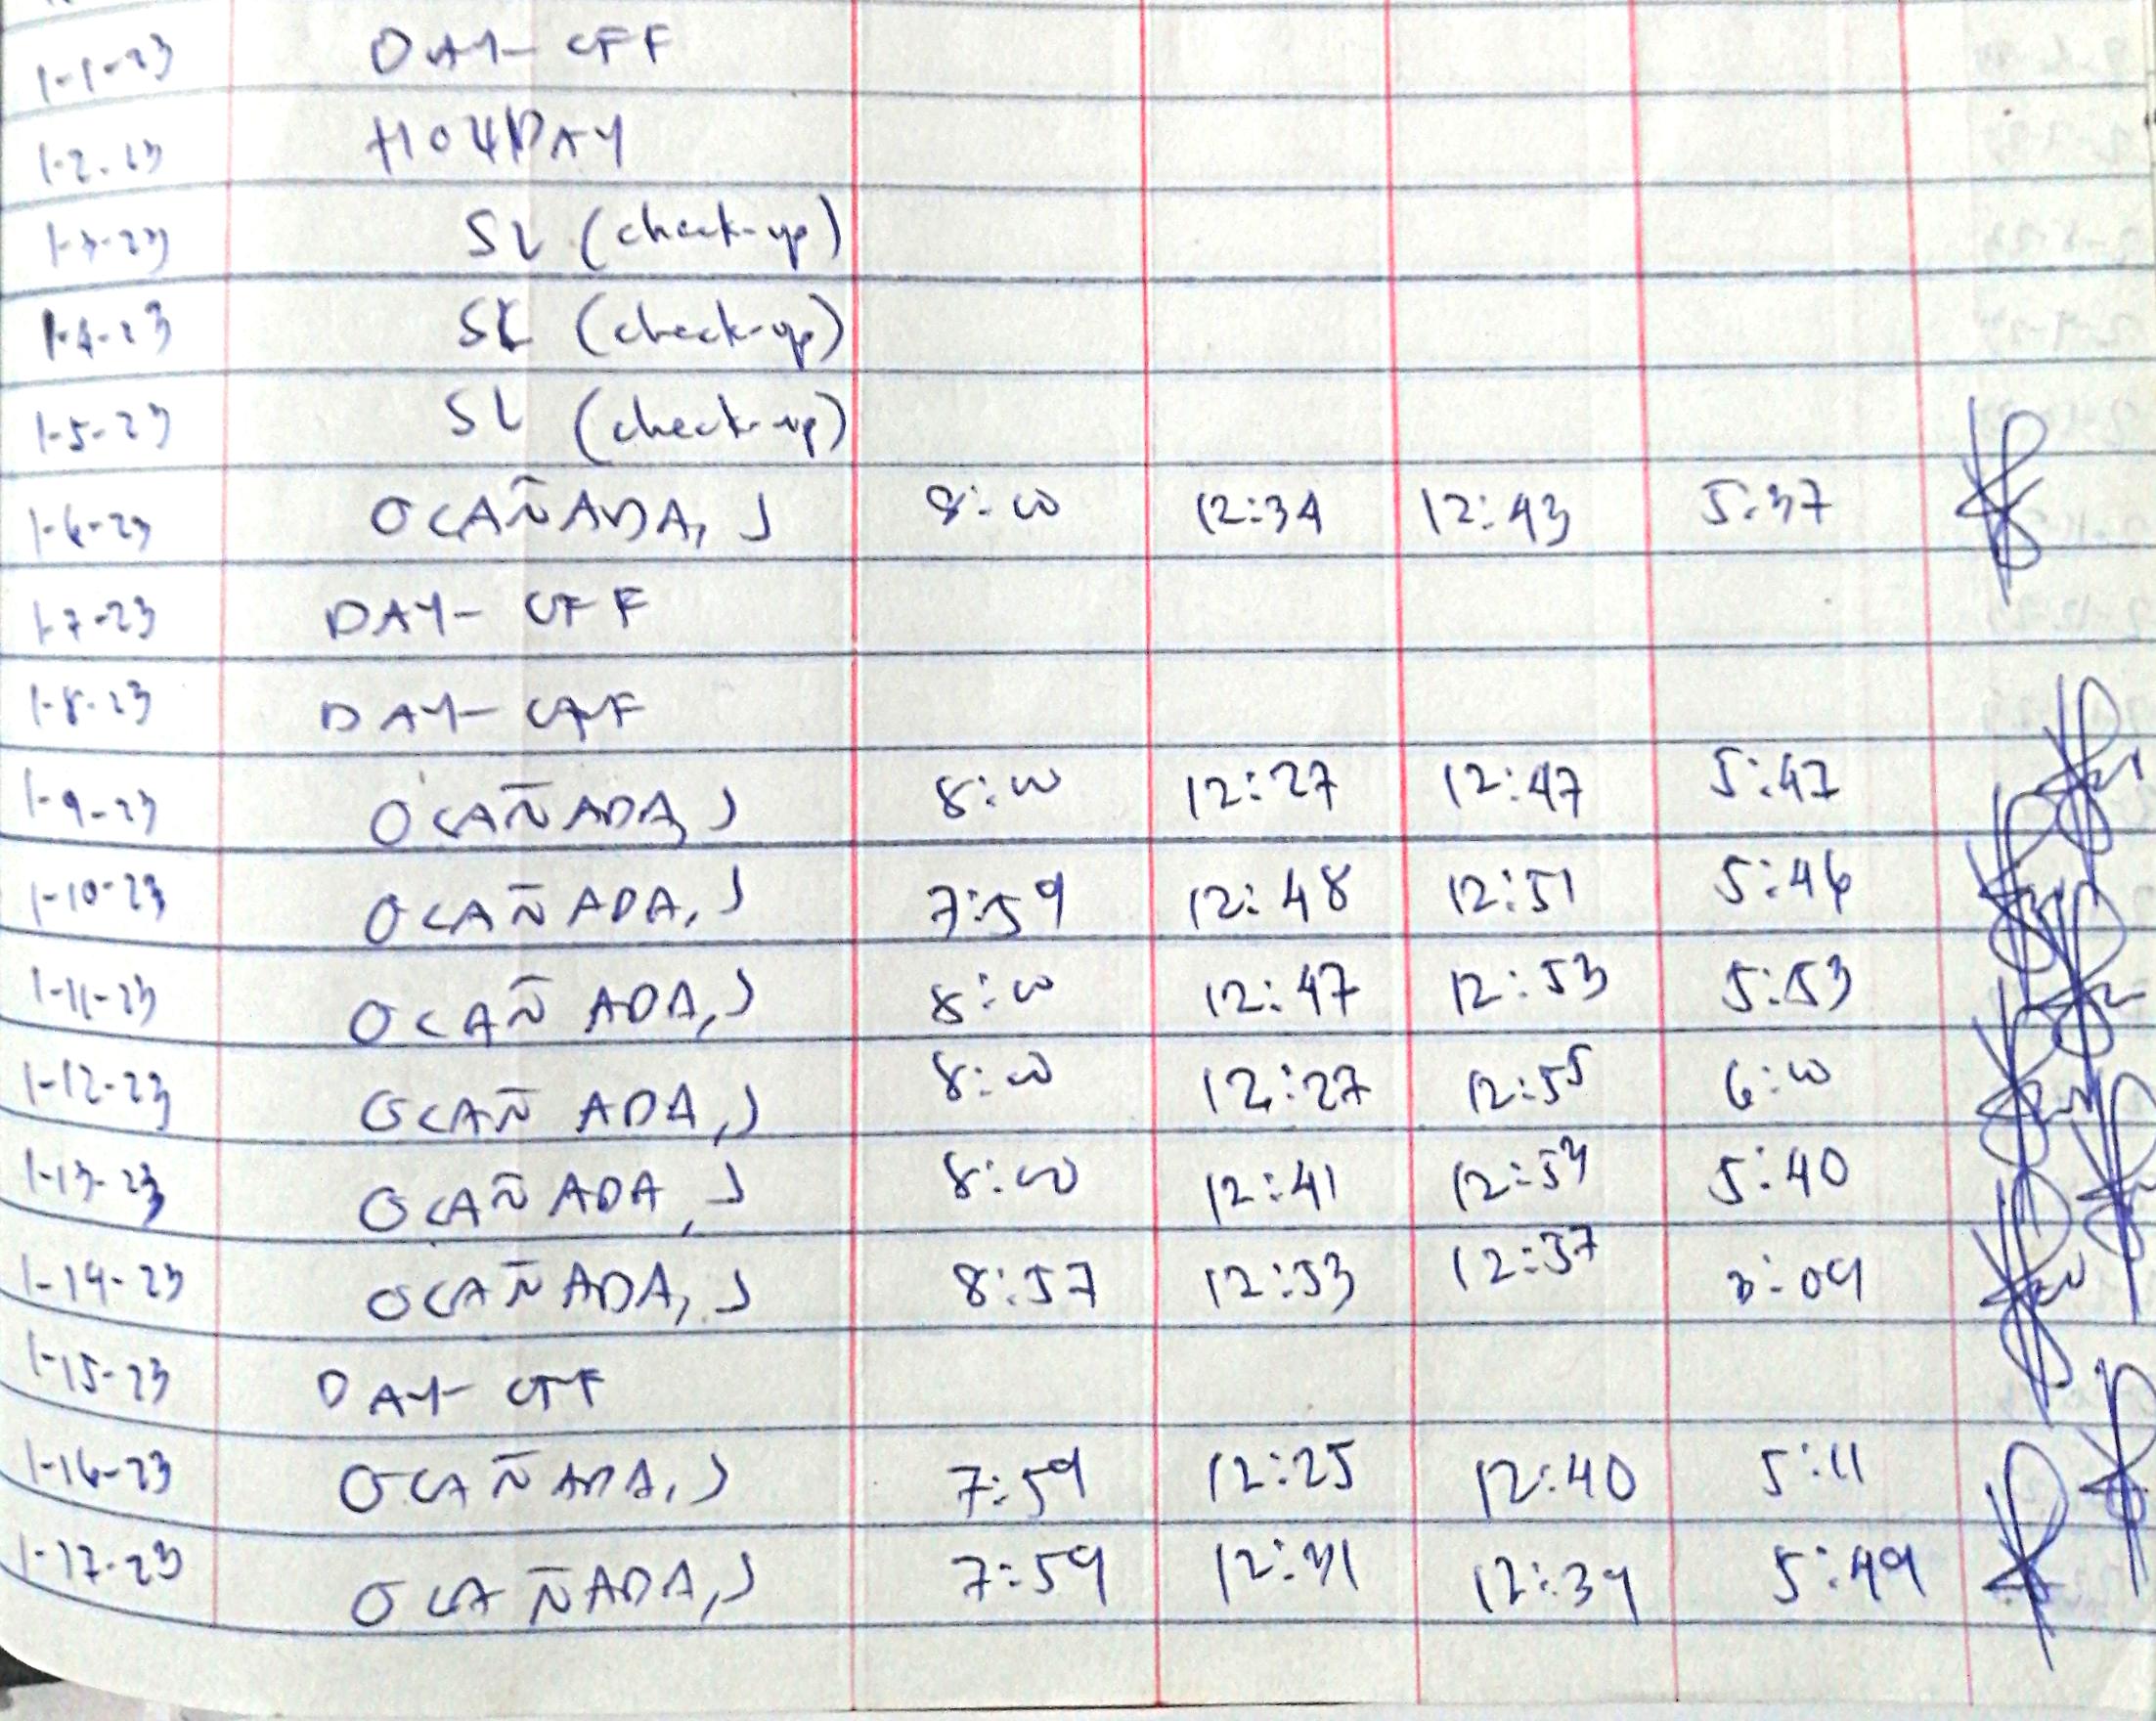 1-1-23 DAY-OFF
1-2-23 HOLIDAY
1-3-23 SL (check-up)
1-4-23 SL (check-up)
1-5-23 SL (check-up)
1-6-23 OCAÑADA, J 8:00 12:34 12:43 5:37
1-7-23 DAY-OFF
1-8-23 DAY-OFF
1-9-23 OCAÑADA, J 8:00 12:27 12:47 5:47
1-10-23 OCAÑADA, J 7:59 12:48 12:51 5:46
1-11-23 OCAÑADA, J 8:00 12:47 12:53 5:53
1-12-23 OCAÑADA, J 8:00 12:27 12:55 6:00
1-13-23 OCAÑADA, J 8:00 12:41 12:53 5:40
1-14-23 OCAÑADA, J 8:57 12:33 12:37 3:09
1-15-23 DAY-OFF
1-16-23 OCAÑADA, J 7:59 12:25 12:40 5:11
1-17-23 OCAÑADA, J 7:59 12:31 12:39 5:49